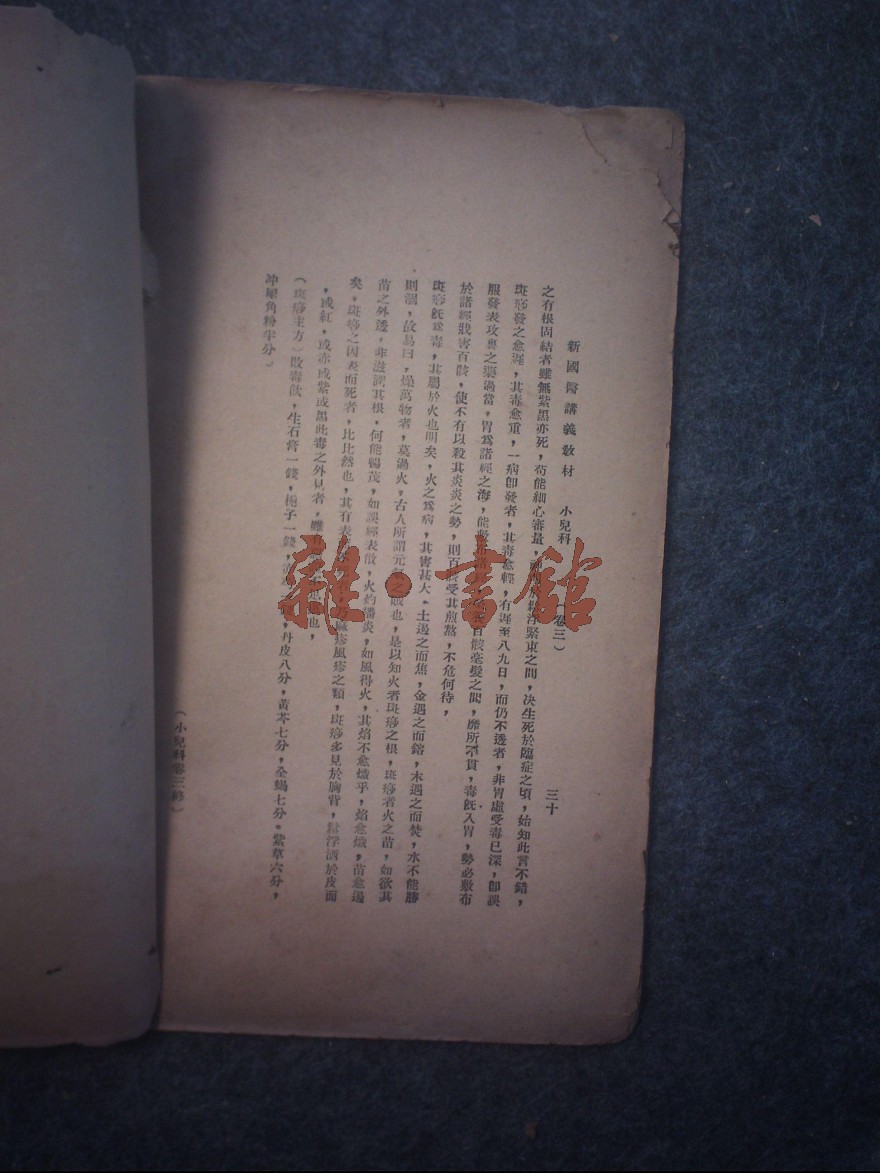 新國醫講義教材　小兒科　（卷三）　三十
之有根固結者雖無紫黑亦死，苟能細心審量，於鬆浮緊束之間，决生死於臨症之頃，始知此言不錯，
斑疹發之愈遲，其毒愈重，一病卽發者，其毒愈輕，有遲至八九日，而仍不透者，非胃虛受毒已深，卽誤
服發表攻裏之藥過當，胃爲諸經之海，能敷布諸百骸毫髮之間，靡所不貫，毒旣入胃，勢必敷布
於諸經戕害百骸，使不有以殺其炎炎之勢，則百骸受其煎熬，不危何待，
斑疹旣爲毒，其屬於火也明矣，火之爲病，其害甚大，土遇之而焦，金遇之而鎔，木遇之而焚，水不能勝
則涸，故易曰，燥萬物者，莫過火，古人所謂元氣之賊也，是以知火者斑疹之根，斑疹者火之苗，如欲其
苗之外透，非滋潤其根，何能暢茂，如誤經表散，火灼燔炎，如風得火，其焰不愈熾乎，焰愈熾，苗愈遏
矣，斑疹之因表而死者，比比然也，其有表而，乃麻疹風疹之類，斑疹多見於胸背，鬆浮洒於皮面
，或紅，或赤或紫或黑此毒之外見者，雖也，
（斑疹主方）敗毒飲，生石膏一錢，梔子一錢，丹皮八分，黃芩七分，全蝎七分。紫草六分，
冲犀角粉半分。
（小兒科卷三終）
雜·書館